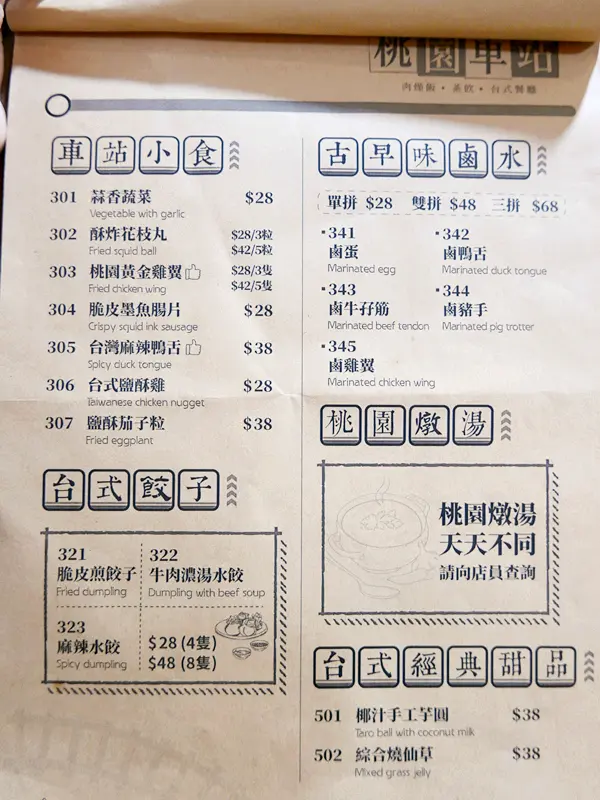 桃園車站
肉燥飯•蒸飲•台式餐廳
車站小食
301 蒜香蔬菜 $28
Vegetable with garlic
302 酥炸花枝丸 $28/3粒
Fried squid ball $42/5粒
303 桃園黃金雞翼 $28/3隻
Fried chicken wing $42/5隻
304 脆皮墨魚腸片 $28
Crispy squid ink sausage
305 台灣麻辣鴨舌 $38
Spicy duck tongue
306 台式鹽酥雞 $28
Taiwanese chicken nugget
307 鹽酥茄子粒 $38
Fried eggplant
台式餃子
321
脆皮煎餃子
Fried dumpling
322
牛肉濃湯水餃
Dumpling with beef soup
323
麻辣水餃
Spicy dumpling
$28 (4隻)
$48 (8隻)
古早味鹵水
單拼 $28 雙拼 $48 三拼 $68
▪341
鹵蛋
Marinated egg
▪342
鹵鴨舌
Marinated duck tongue
▪343
鹵牛孖筋
Marinated beef tendon
▪344
鹵豬手
Marinated pig trotter
▪345
鹵雞翼
Marinated chicken wing
桃園燉湯
桃園燉湯
天天不同
請向店員查詢
台式經典甜品
501 椰汁手工芋圓 $38
Taro ball with coconut milk
502 綜合燒仙草 $38
Mixed grass jelly